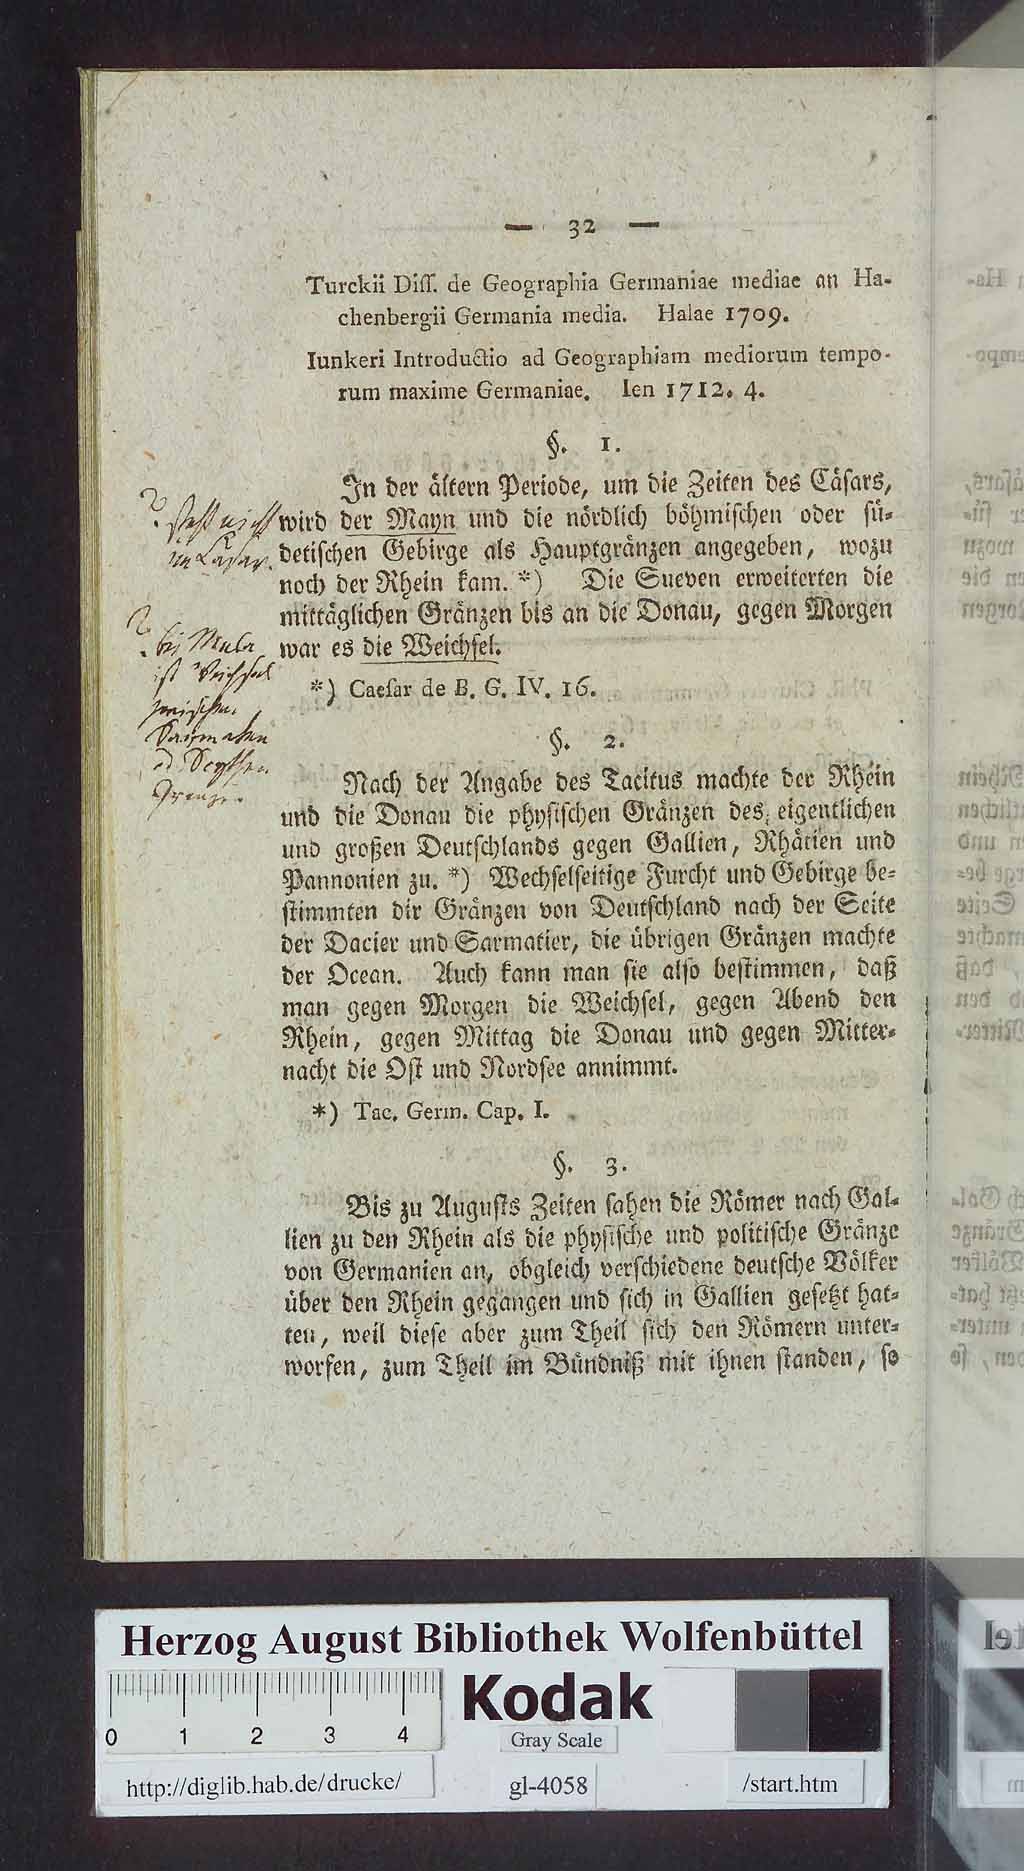 — 32 —
Turckii Diſſ. de Geographia Germaniae mediae an Ha-
chenbergii Germania media. Halae 1709.
Iunkeri Introductio ad Geographiam mediorum tempo-
rum maxime Germaniae. Ien 1712. 4.
§. 1.
In der ältern Periode, um die Zeiten des Cäſars,
wird der Mayn und die nördlich böhmiſchen oder ſü-
detiſchen Gebirge als Hauptgränzen angegeben, wozu
noch der Rhein kam. *) Die Sueven erweiterten die
mittäglichen Gränzen bis an die Donau, gegen Morgen
war es die Weichſel.
? steht nicht
im Cäsar.
? bei Mela
ist Weichsel
zwischen
Sarmaten
od. Scythen
Grenze.
*) Caeſar de B. G. IV. 16.
§. 2.
Nach der Angabe des Tacitus machte der Rhein
und die Donau die phyſiſchen Gränzen des eigentlichen
und großen Deutſchlands gegen Gallien, Rhätien und
Pannonien zu. *) Wechſelſeitige Furcht und Gebirge be-
ſtimmten dir Gränzen von Deutſchland nach der Seite
der Dacier und Sarmatier, die übrigen Gränzen machte
der Ocean. Auch kann man ſie alſo beſtimmen, daß
man gegen Morgen die Weichſel, gegen Abend den
Rhein, gegen Mittag die Donau und gegen Mitter-
nacht die Oſt und Nordſee annimmt.
*) Tac. Germ. Cap. I.
§. 3.
Bis zu Auguſts Zeiten ſahen die Römer nach Gal-
lien zu den Rhein als die phyſiſche und politiſche Gränze
von Germanien an, obgleich verſchiedene deutſche Völker
über den Rhein gegangen und ſich in Gallien geſetzt hat-
ten, weil dieſe aber zum Theil ſich den Römern unter-
worfen, zum Theil im Bündniß mit ihnen ſtanden, ſo
Herzog August Bibliothek Wolfenbüttel
0 1 2 3 4
Kodak
Gray Scale
http://diglib.hab.de/drucke/ gl-4058 /start.htm